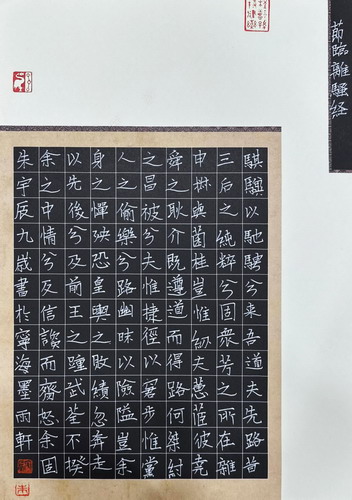 莭臨離騷経
騏驥以馳騁兮來吾道夫先路昔
三后之純粹兮固衆芳之所在雜
申椒與菌桂豈惟紉夫蕙茝彼堯
舜之耿介既遵道而得路何桀紂
之昌被兮夫惟捷徑以窘步惟黨
人之偷樂兮路幽昧以險隘豈余
身之憚殃恐皇輿之敗績忽奔走
以先後兮及前王之踵武荃不揆
余之中情兮反信讒而齌怒余固
朱宇辰九歲書於寧海墨雨軒